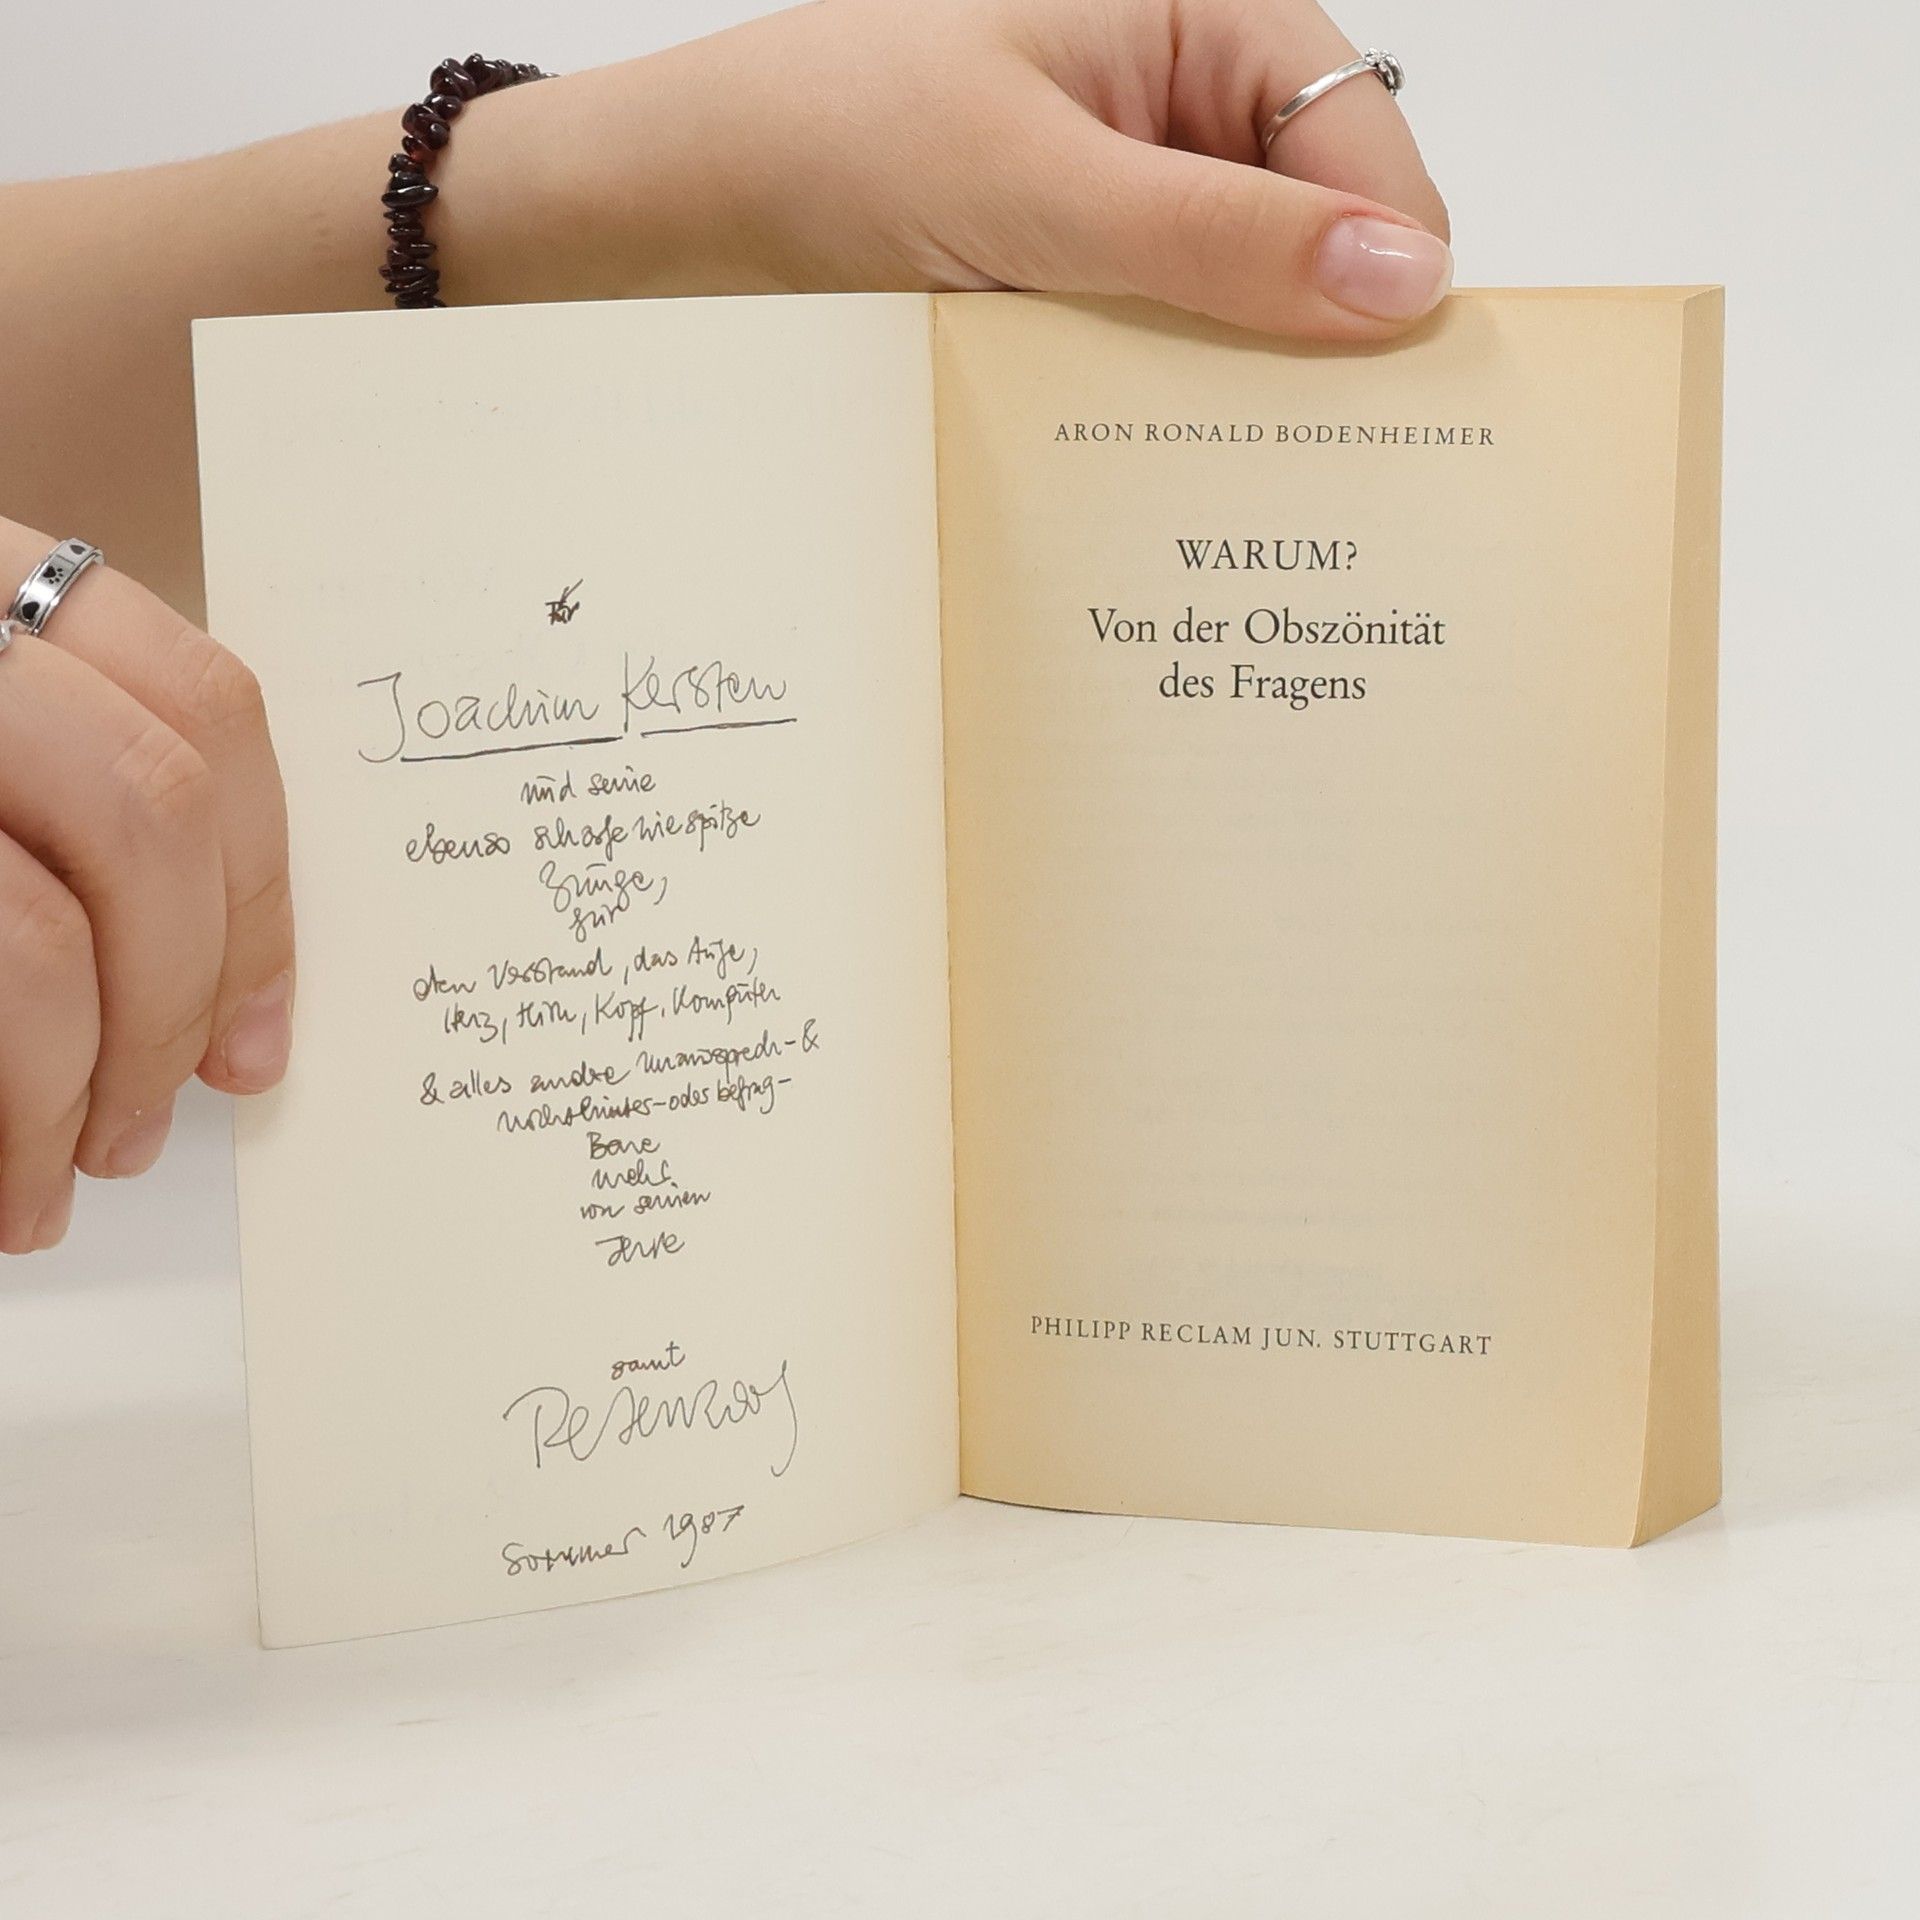 Für
Joachim Kersten
und seine
ebenso scharfe wie spitze
Zunge,
für
den Verstand, das Auge,
Herz, Hirn, Kopf, Komputer
& alles andre Unaussprech- &
oder befrag-
Bare
mehr
von seinen
samt
Sommer 1987
ARON RONALD BODENHEIMER
WARUM?
Von der Obszönität
des Fragens
PHILIPP RECLAM JUN. STUTTGART